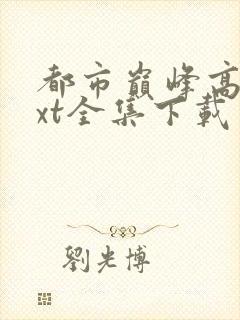 都市巅峰高
xt全集下载
劉光博